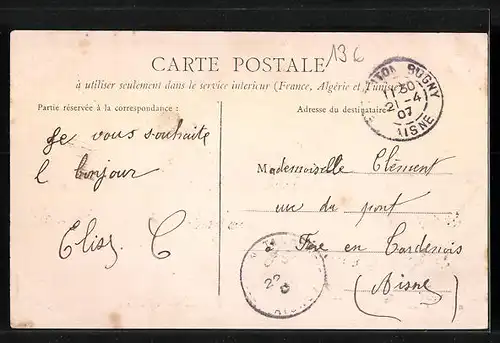 136
CARTE POSTALE
à utiliser seulement dans le service intérieur (France, Algérie et Tunisie
Partie réservée à la correspondance :
Adresse du destinataire
BUGNY
11 30
21 - 4
07
AISNE
Je vous souhaite
le bonjour
Elise C
Mademoiselle Clément
du pont
Fère en Tardenois
(Aisne)
22